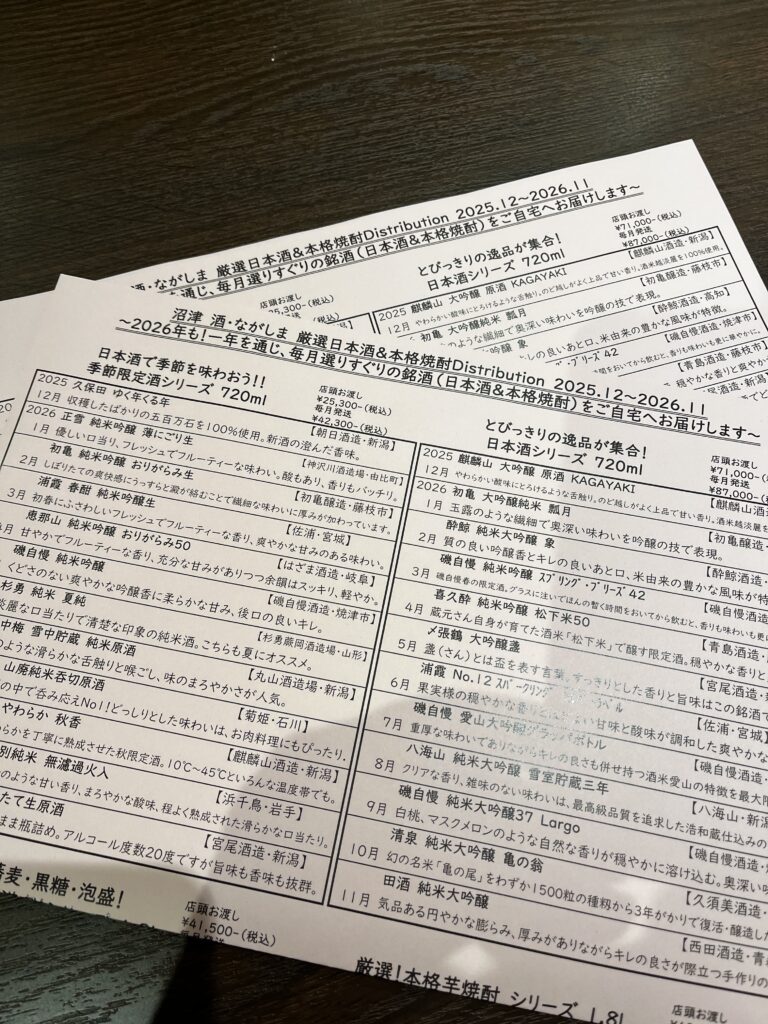 酒・ながしま 厳選日本酒&本格焼酎Distribution 2025.12～2026.11
を通じ、毎月選りすぐりの銘酒(日本酒&本格焼酎)をご自宅へお届けします～
店頭お渡し
¥71,000-(税込)
毎月発送
¥87,000-(税込)
とびっきりの逸品が集合!
日本酒シリーズ 720ml
店頭お渡し
25,300-(税込)
2025 麒麟山 大吟醸 原酒 KAGAYAKI
【麒麟山酒造・新潟】
12月 やわらかい酸味にとろけるような舌触り。のど越しがよく上品で甘い香り。酒米越淡麗を100%使用。
初亀 大吟醸純米 瓢月
【初亀醸造・藤枝市】
のような繊細で奥深い味わいを吟醸の技で表現。
吟醸 象
【酔鯨酒造・高知】
香とキレの良いあと口、米由来の豊かな風味が特徴。
ブリーズ 42
【磯自慢酒造・焼津市】
間をおいてから飲むと、香りも味わいも更に華やかに。
【青島酒造・藤枝市】
沼津 酒・ながしま 厳選日本酒&本格焼酎Distribution 2025.12～2026.11
～2026年も!一年を通じ、毎月選りすぐりの銘酒(日本酒&本格焼酎)をご自宅へお届けします～
日本酒で季節を味わおう!!
季節限定酒シリーズ 720ml
店頭お渡し
¥25,300-(税込)
毎月発送
¥42,300-(税込)
2025 久保田 ゆく年くる年
【朝日酒造・新潟】
12月 収穫したばかりの五百万石を100%使用。新酒の澄んだ香味。
2026 正雪 純米吟醸 薄にごり生
【神沢川酒造場・由比町】
1月 優しい口当り、フレッシュでフルーティーな味わい。酸もあり、香りもバッチリ。
初亀 純米吟醸 おりがらみ生
【初亀醸造・藤枝市】
2月 しぼりたての爽快感にうっすらと澱が絡むことで繊細な味わいに厚みが加わっています。
浦霞 春酣 純米吟醸生
【佐浦・宮城】
3月 初春にふさわしいフレッシュでフルーティーな香り、爽やかな甘みのある味わい。
恵那山 純米吟醸 おりがらみ50
【はざま酒造・岐阜】
月 甘やかでフルーティな香り、充分な甘みがありつつ余韻はスッキリ、軽やか。
磯自慢 純米吟醸
【磯自慢酒造・焼津市】
くどさのない爽やかな吟醸香に柔らかな甘み、後口の良いキレ。
杉勇 純米 夏純
【杉勇蕨岡酒造場・山形】
淡麗な口当たりで清楚な印象の純米酒。こちらも夏にオススメ。
中梅 雪中貯蔵 純米原酒
【丸山酒造場・新潟】
のような滑らかな舌触りと喉ごし、味のまろやかさが人気。
山廃純米吞切原酒
【菊姫・石川】
の中で呑み応えNo1!どっしりとした味わいは、お肉料理にもぴったり。
やわらか 秋香
【麒麟山酒造・新潟】
らかを丁寧に熟成させた秋限定酒。10℃～45℃といろんな温度帯でも。
別純米 無濾過火入
【浜千鳥・岩手】
のような甘い香り、まろやかな酸味、程よく熟成された滑らかな口当たり。
たて生原酒
【宮尾酒造・新潟】
まま瓶詰め。アルコール度数20度ですが旨味も香味も抜群。
とびっきりの逸品が集合!
日本酒シリーズ 720ml
店頭お渡し
¥71,000-(
毎月発送
¥87,000-(
2025 麒麟山 大吟醸 原酒 KAGAYAKI
【麒麟山酒造
12月 やわらかい酸味にとろけるような舌触り。のど越しがよく上品で甘い香り。酒米越淡麗を
2026 初亀 大吟醸純米 瓢月
【初亀醸造・
1月 玉露のような繊細で奥深い味わいを吟醸の技で表現。
酔鯨 純米大吟醸 象
【酔鯨酒造・
2月 質の良い吟醸香とキレの良いあと口、米由来の豊かな風味が特
磯自慢 純米吟醸 スプリング・ブリーズ42
【磯自慢酒造
3月 磯自慢春の限定酒。グラスに注いでほんの暫く時間をおいてから飲むと、香りも味わいも更に
喜久酔 純米吟醸 松下米50
【青島酒造・
4月 蔵元さん自身が育てた酒米「松下米」で醸す限定酒。穏やかな香りと
〆張鶴 大吟醸盞
【宮尾酒造・新
5月 盞(さん)とは盃を表す言葉。すっきりとした香りと旨味はこの銘酒で
浦霞 No.12 スパークリング
【佐浦・宮城】
6月 果実様の穏やかな香りと 甘味と酸味が調和した爽やかな
磯自慢 愛山大吟醸グラッパボトル
【磯自慢酒造・
7月 重厚な味わいでありながらキレの良さも併せ持つ酒米愛山の特徴を最大限
八海山 純米大吟醸 雪室貯蔵三年
【八海山・新潟
8月 クリアな香り、雑味のない味わいは、最高級品質を追求した浩和蔵仕込みの
磯自慢 純米大吟醸37 Largo
【磯自慢酒造・
9月 白桃、マスクメロンのような自然な香りが穏やかに溶け込む。奥深い味
清泉 純米大吟醸 亀の翁
【久須美酒造・
10月 幻の名米「亀の尾」をわずか1500粒の種籾から3年がかりで復活・醸造した
田酒 純米大吟醸
【西田酒造・青
11月 気品ある円やかな膨らみ、厚みがありながらキレの良さが際立つ手作りの
蕎麦・黒糖・泡盛!
店頭お渡し
¥41,500-(税込)
厳選!本格芋焼酎 シリーズ 1.8l
店頭お渡し